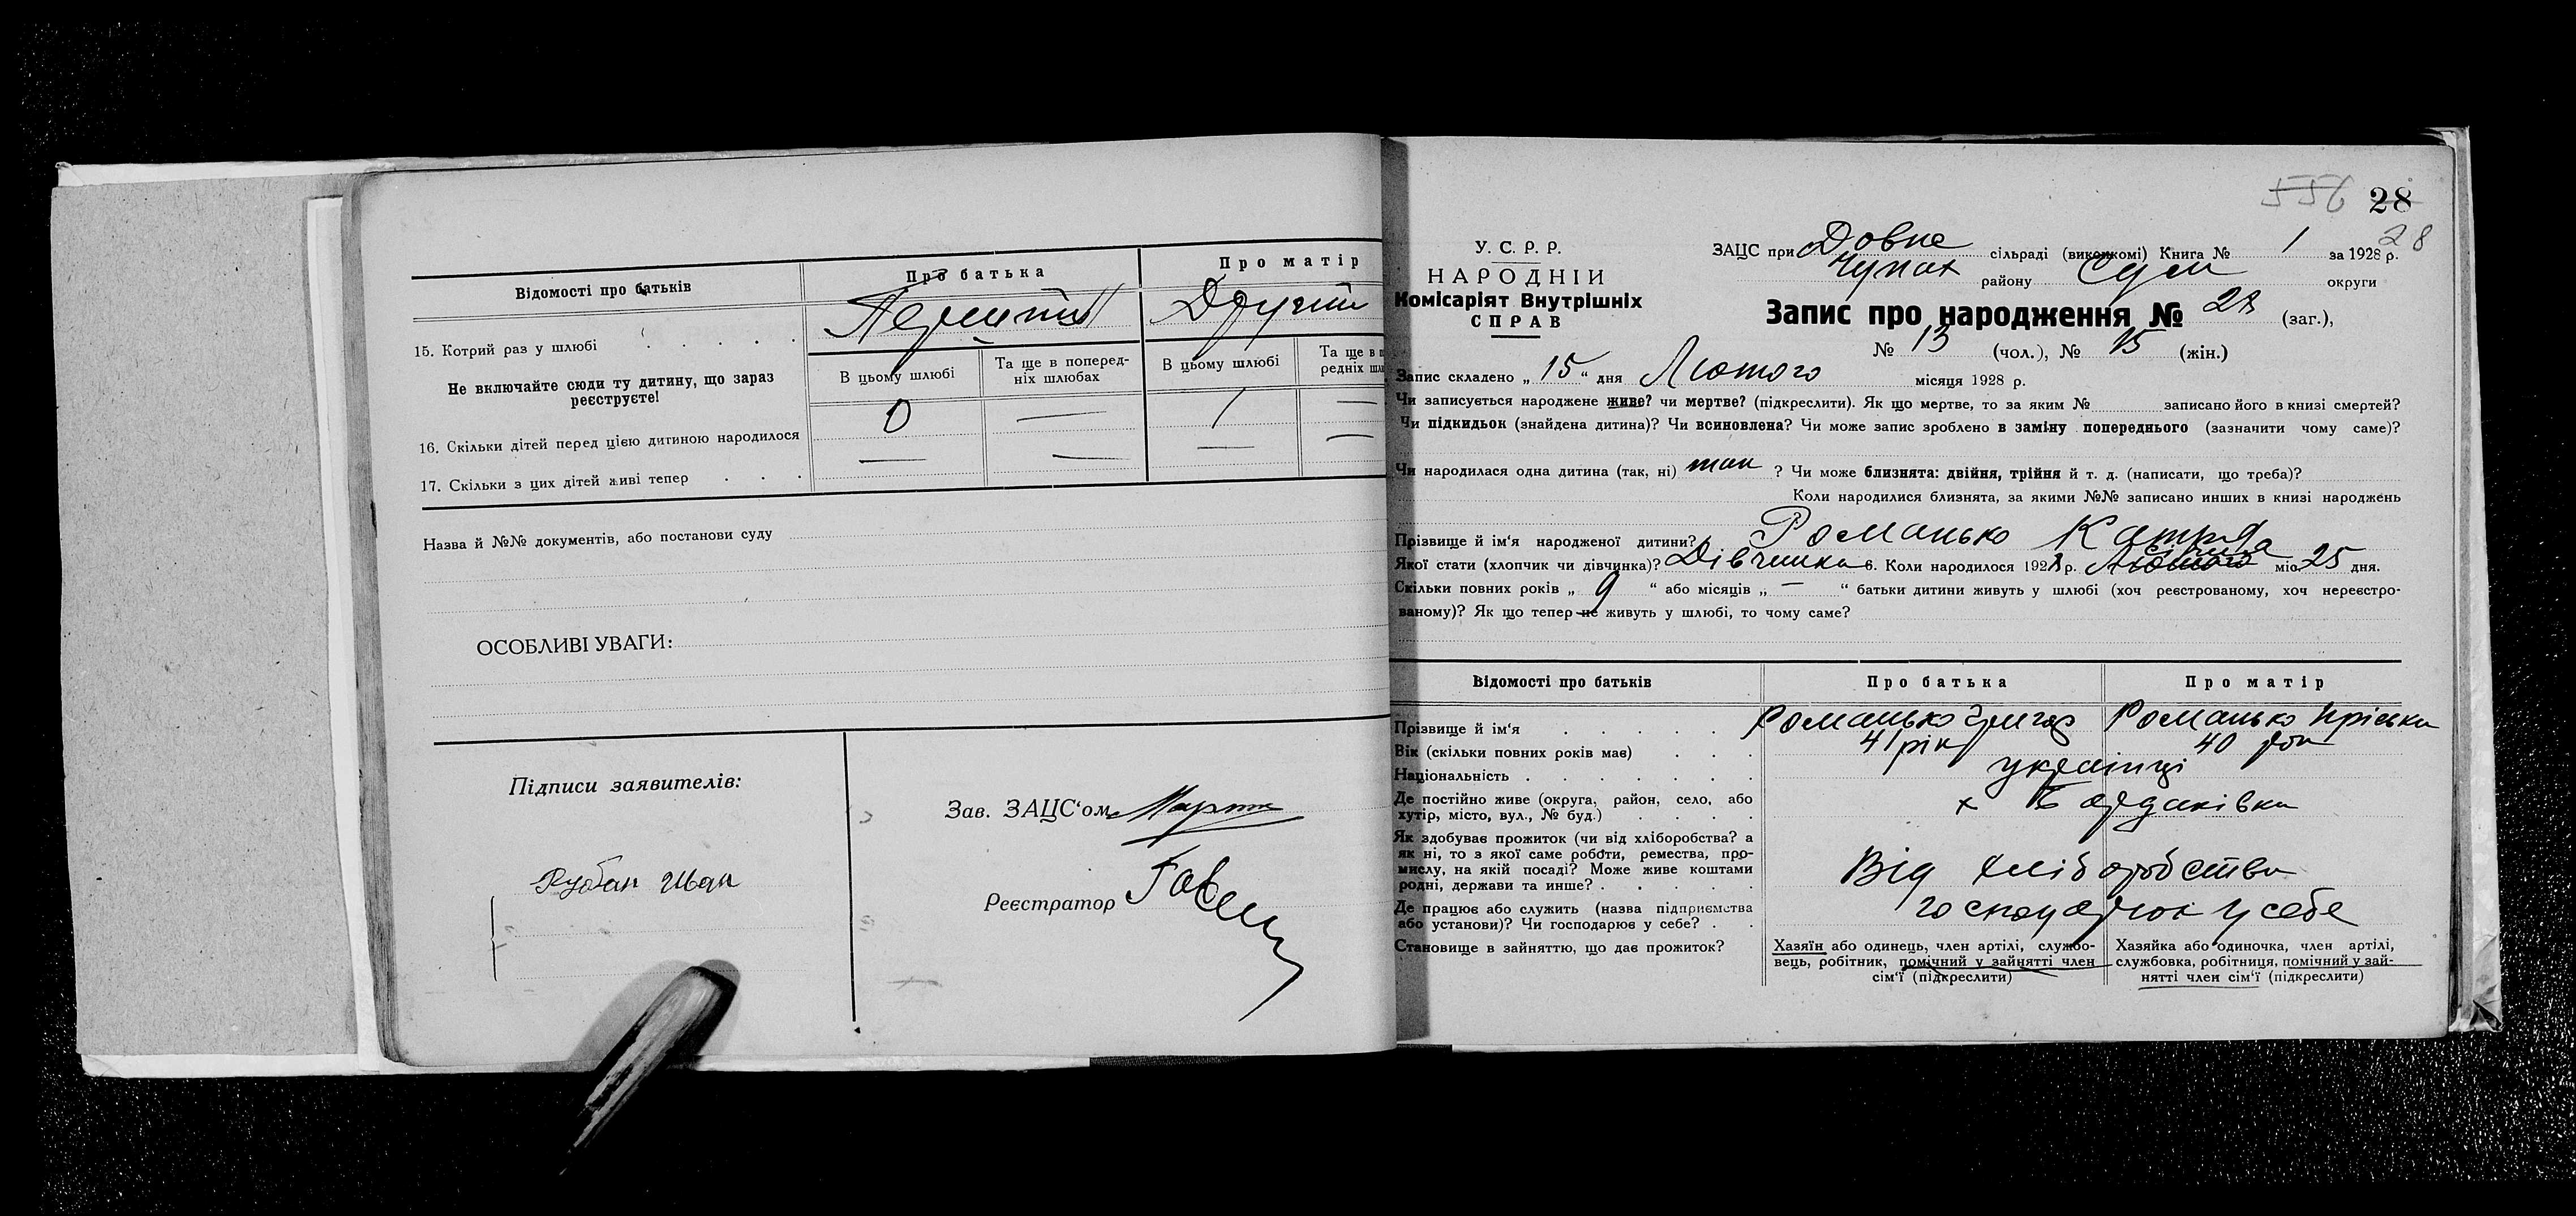 Відомості про батьків
Про батька
Про матір
15. Котрий раз у шлюбі
Перший
Другий
Не включайте сюди ту дитину, що зараз
реєструєте!
В цьому шлюбі
Та ще в поперед-
ніх шлюбах
В цьому шлюбі
Та ще в п
редніх шл
16. Скільки дітей перед цією дитиною народилося
0 — 1 —
17. Скільки з цих дітей живі тепер
— — — —
Назва й №№ документів, або постанови суду
ОСОБЛИВІ УВАГИ:
Підписи заявителів:
Рубан Иван
Зав. ЗАЦС'ом
Реєстратор
556 28
28
У. С. Р. Р.
НАРОДНІЙ
Комісаріят Внутрішніх
СПРАВ
ЗАЦС при Довне сільраді (викоккомі) Книга № 1 за 1928 р.
Чупах району Сум округи
Запис про народження № 28 (заг.),
№ 13 (чол.), № 15 (жін.)
Запис складено „ 15 “ дня Лютого місяця 1928 р.
Чи записується народжене живе? чи мертве? (підкреслити). Як що мертве, то за яким № записано його в книзі смертей?
Чи підкидьок (знайдена дитина)? Чи всиновлена? Чи може запис зроблено в заміну попереднього (зазначити чому саме)?
Чи народилася одна дитина (так, ні) так ? Чи може близнята: двійня, трійня й т. д. (написати, що треба)?
Коли народилися близнята, за якими №№ записано инших в книзі народжень
Прізвище й ім'я народженої дитини? Романько Катря
Якої стати (хлопчик чи дівчинка)? Дівчинка 6. Коли народилося 1928 р. Лютого міс. 25 дня.
Скільки повних років „ 9 “ або місяців „ — “ батьки дитини живуть у шлюбі (хоч реєстрованому, хоч нереєстро-
ваному)? Як що тепер не живуть у шлюбі, то чому саме?
Відомості про батьків
Про батька
Про матір
Прізвище й ім'я
Романько Григор
Романько Пріська
Вік (скільки повних років має)
41 рік
40 рок
Національність
українці
Де постійно живе (округа, район, село, або
хутір, місто, вул., № буд.)
х Бардаківка
Як здобуває прожиток (чи від хліборобства? а
як ні, то з якої саме роботи, ремества, про-
мислу, на якій посаді? Може живе коштами
родні, держави та инше?
Від хліборобства
Де працює або служить (назва підприємства
або установи)? Чи господарює у себе?
господарює у себе
Становище в зайняттю, що дає прожиток?
Хазяїн або одинець, член артілі, службо-
вець, робітник, помічний у зайнятті член
сім'ї (підкреслити)
Хазяйка або одиночка, член артілі,
службовка, робітниця, помічний у зай-
нятті член сім'ї (підкреслити)